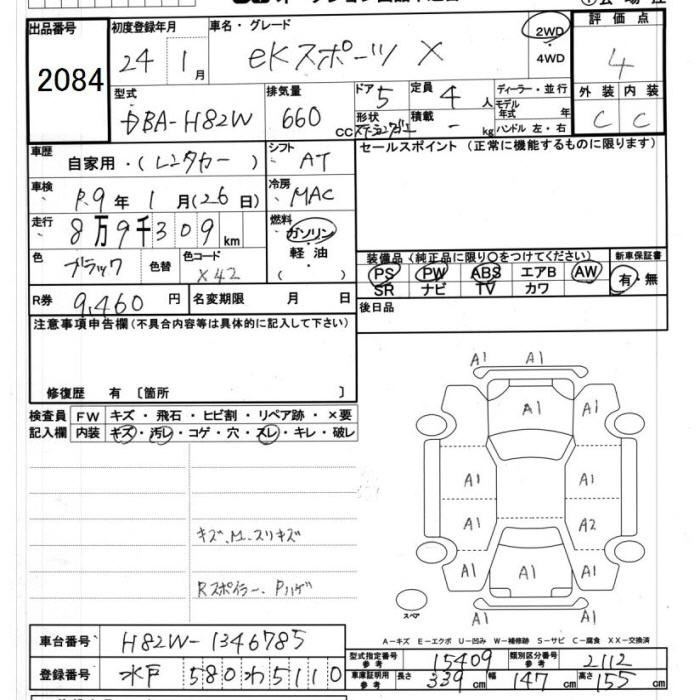 出品番号
2084
初度登録年月
24 1月
車名・グレード
eKスポーツ X
2WD
・
4WD
評価点
4
外装 内装
C C
型式
DBA-H82W
排気量
660 CC
ドア 5
定員 4 人
形状
積載 - kg
ディーラー・並行
モデル年式 年
ハンドル 左・右
車歴 自家用・(レンタカー)
シフト AT
セールスポイント (正常に機能するものに限ります)
車検 R.9年 1月(26日)
冷房 MAC
走行 8万9千309km
燃料
ガソリン
軽・油
( )
色 ブラック 色替
色コード X42
装備品 (純正品に限り〇をつけてください)
新車保証書
PS PW ABS エアB AW
SR ナビ TV カワ
有・無
R券 9,460 円
名変期限 月 日
後日品
注意事項申告欄(不具合内容等は具体的に記入して下さい)
修復歴 有 〔箇所 〕
検査員
記入欄
FW キズ・飛石・ヒビ割・リペア跡・×要
内装 キズ・汚レ・コゲ・穴・スレ・キレ・破レ
キズ、M.スリキズ
Rスポイラー Pハゲ
A1 A1
A1 A1 A1
A1 A1
A1 A2
A1 A1 A1
A1
スペア
A-キズ E-エクボ U-凹み W-補修跡 S-サビ C-腐食 XX-交換済
車台番号 H82W-1346785
登録番号 水戸 580わ5110
型式指定番号
参考 15409
類別区分番号
参考 2112
車庫証明用
参考
長さ 339cm 幅 147cm 高さ 155cm